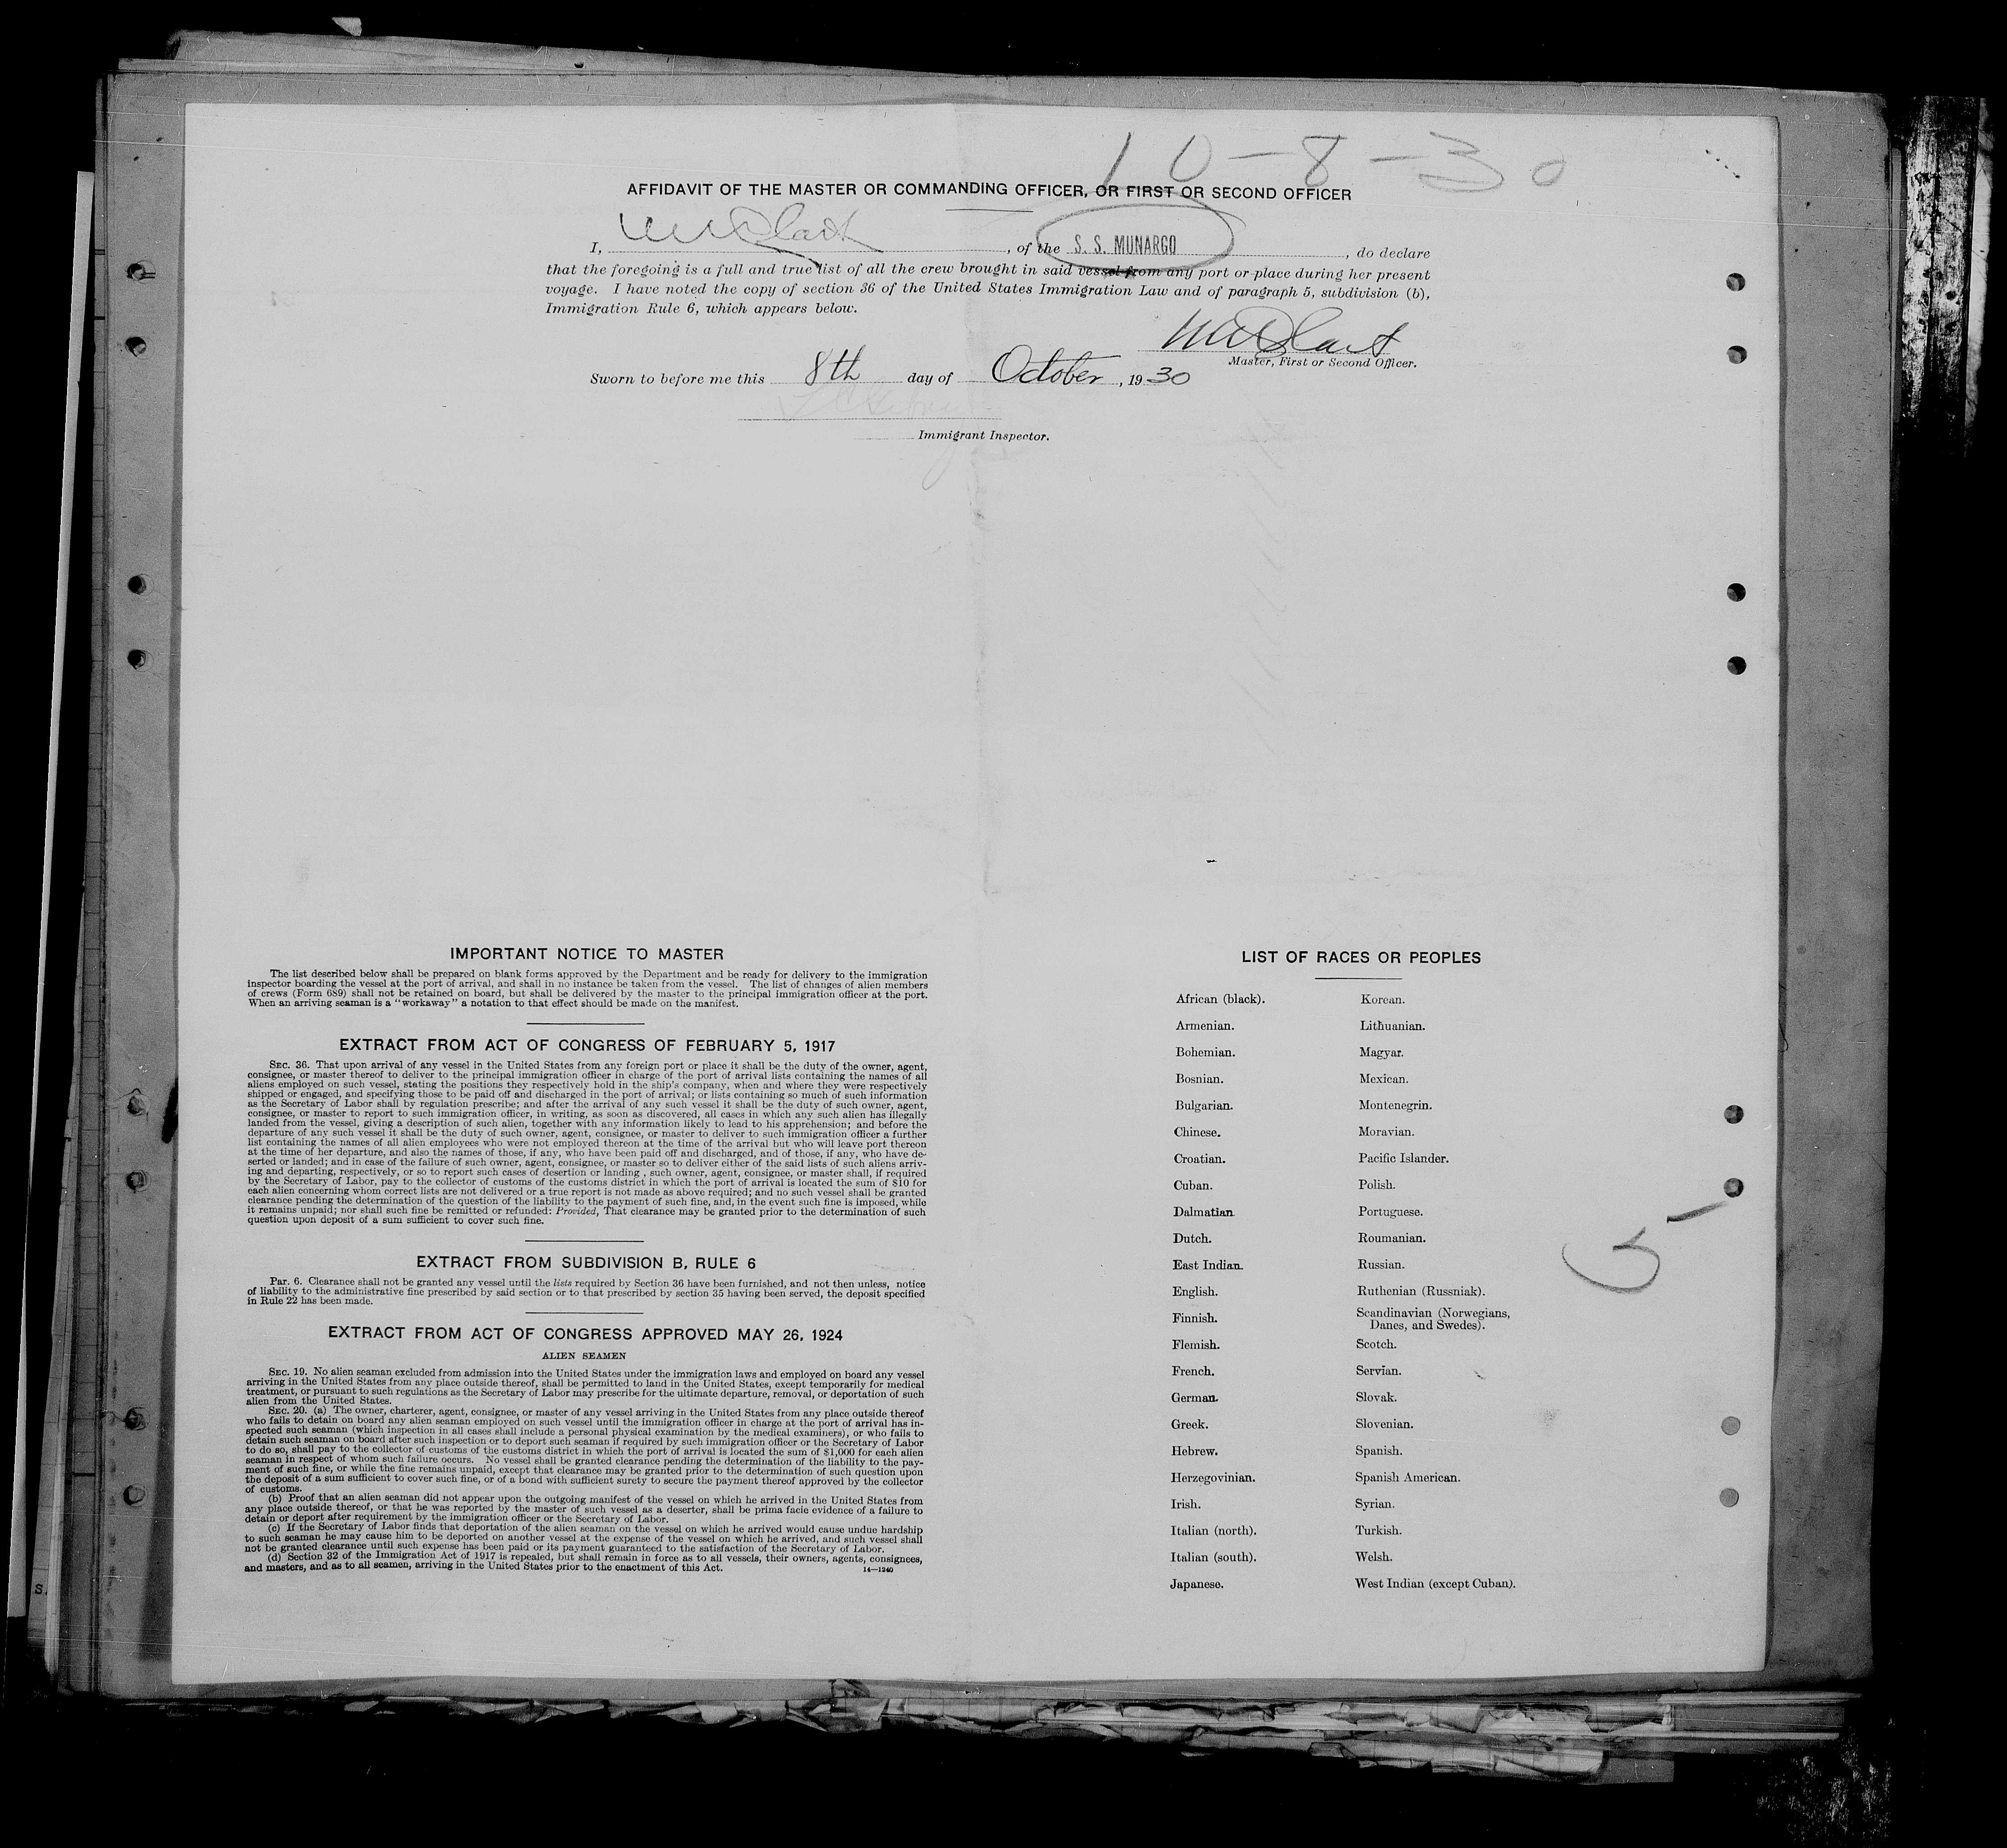 10-8-30
AFFIDAVIT OF THE MASTER OR COMMANDING OFFICER, OR FIRST OR SECOND OFFICER
I, Clark, of the S. S. MUNARGO, do declare
that the foregoing is a full and true list of all the crew brought in said vessel from any port or place during her present
voyage. I have noted the copy of section 36 of the United States Immigration Law and of paragraph 5, subdivision (b),
Immigration Rule 6, which appears below.
Clark
Master, First or Second Officer.
Sworn to before me this 8th day of October, 1930
Immigrant Inspector.
IMPORTANT NOTICE TO MASTER
The list described below shall be prepared on blank forms approved by the Department and be ready for delivery to the immigration
inspector boarding the vessel at the port of arrival, and shall in no instance be taken from the vessel. The list of changes of alien members
of crews (Form 689) shall not be retained on board, but shall be delivered by the master to the principal immigration officer at the port.
When an arriving seaman is a "workaway" a notation to that effect should be made on the manifest.
EXTRACT FROM ACT OF CONGRESS OF FEBRUARY 5, 1917
SEC. 36. That upon arrival of any vessel in the United States from any foreign port or place it shall be the duty of the owner, agent,
consignee, or master thereof to deliver to the principal immigration officer in charge of the port of arrival lists containing the names of all
aliens employed on such vessel, stating the positions they respectively hold in the ship's company, when and where they were respectively
shipped or engaged, and specifying those to be paid off and discharged in the port of arrival; or lists containing so much of such information
as the Secretary of Labor shall by regulation prescribe; and after the arrival of any such vessel it shall be the duty of such owner, agent,
consignee, or master to report to such immigration officer, in writing, as soon as discovered, all cases in which any such alien has illegally
landed from the vessel, giving a description of such alien, together with any information likely to lead to his apprehension; and before the
departure of any such vessel it shall be the duty of such owner, agent, consignee, or master to deliver to such immigration officer a further
list containing the names of all alien employees who were not employed thereon at the time of the arrival but who will leave port thereon
at the time of her departure, and also the names of those, if any, who have been paid off and discharged, and of those, if any, who have de-
serted or landed; and in case of the failure of such owner, agent, consignee, or master so to deliver either of the said lists of such aliens arriv-
ing and departing, respectively, or so to report such cases of desertion or landing, such owner, agent, consignee, or master shall, if required
by the Secretary of Labor, pay to the collector of customs of the customs district in which the port of arrival is located the sum of $10 for
each alien concerning whom correct lists are not delivered or a true report is not made as above required; and no such vessel shall be granted
clearance pending the determination of the question of the liability to the payment of such fine, and, in the event such fine is imposed, while
it remains unpaid; nor shall such fine be remitted or refunded: Provided, That clearance may be granted prior to the determination of such
question upon deposit of a sum sufficient to cover such fine.
EXTRACT FROM SUBDIVISION B, RULE 6
Par. 6. Clearance shall not be granted any vessel until the lists required by Section 36 have been furnished, and not then unless, notice
of liability to the administrative fine prescribed by said section or to that prescribed by section 35 having been served, the deposit specified
in Rule 22 has been made.
EXTRACT FROM ACT OF CONGRESS APPROVED MAY 26, 1924
ALIEN SEAMEN
SEC. 19. No alien seaman excluded from admission into the United States under the immigration laws and employed on board any vessel
arriving in the United States from any place outside thereof, shall be permitted to land in the United States, except temporarily for medical
treatment, or pursuant to such regulations as the Secretary of Labor may prescribe for the ultimate departure, removal, or deportation of such
alien from the United States.
SEC. 20. (a) The owner, charterer, agent, consignee, or master of any vessel arriving in the United States from any place outside thereof
who fails to detain on board any alien seaman employed on such vessel until the immigration officer in charge at the port of arrival has in-
spected such seaman (which inspection in all cases shall include a personal physical examination by the medical examiners), or who fails to
detain such seaman on board after such inspection or to deport such seaman if required by such immigration officer or the Secretary of Labor
to do so, shall pay to the collector of customs of the customs district in which the port of arrival is located the sum of $1,000 for each alien
seaman in respect of whom such failure occurs. No vessel shall be granted clearance pending the determination of the liability to the pay-
ment of such fine, or while the fine remains unpaid, except that clearance may be granted prior to the determination of such question upon
the deposit of a sum sufficient to cover such fine, or of a bond with sufficient surety to secure the payment thereof approved by the collector
of customs.
(b) Proof that an alien seaman did not appear upon the outgoing manifest of the vessel on which he arrived in the United States from
any place outside thereof, or that he was reported by the master of such vessel as a deserter, shall be prima facie evidence of a failure to
detain or deport after requirement by the immigration officer or the Secretary of Labor.
(c) If the Secretary of Labor finds that deportation of the alien seaman on the vessel on which he arrived would cause undue hardship
to such seaman he may cause him to be deported on another vessel at the expense of the vessel on which he arrived, and such vessel shall
not be granted clearance until such expense has been paid or its payment guaranteed to the satisfaction of the Secretary of Labor.
(d) Section 32 of the Immigration Act of 1917 is repealed, but shall remain in force as to all vessels, their owners, agents, consignees,
and masters, and as to all seamen, arriving in the United States prior to the enactment of this Act.
14—1240
LIST OF RACES OR PEOPLES
African (black). Korean.
Armenian. Lithuanian.
Bohemian. Magyar.
Bosnian. Mexican.
Bulgarian. Montenegrin.
Chinese. Moravian.
Croatian. Pacific Islander.
Cuban. Polish.
Dalmatian. Portuguese.
Dutch. Roumanian.
East Indian. Russian.
English. Ruthenian (Russniak).
Finnish. Scandinavian (Norwegians,
Danes, and Swedes).
Flemish. Scotch.
French. Servian.
German. Slovak.
Greek. Slovenian.
Hebrew. Spanish.
Herzegovinian. Spanish American.
Irish. Syrian.
Italian (north). Turkish.
Italian (south). Welsh.
Japanese. West Indian (except Cuban).